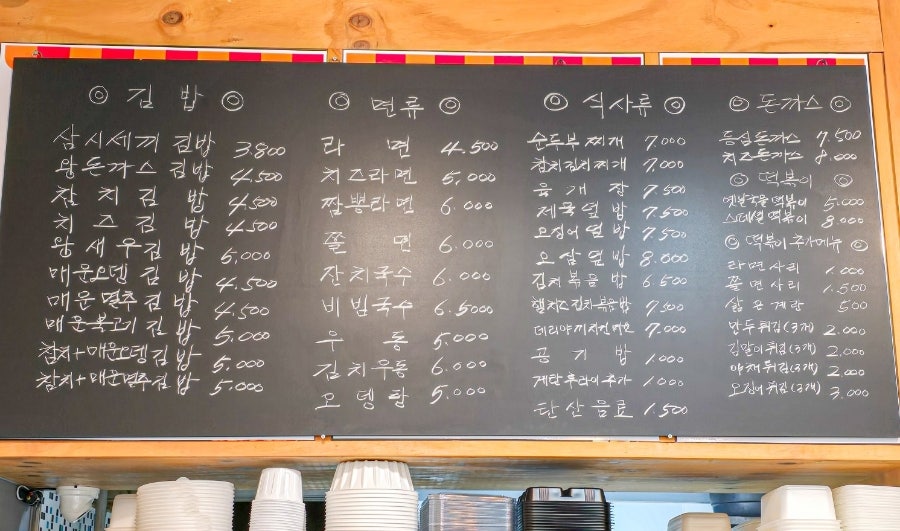 ◎ 김 밥 ◎
삼시세끼 김밥 3.800
왕돈까스 김밥 4.500
참치김밥 4.500
치즈김밥 4.500
왕새우김밥 5.000
매운오뎅김밥 4.500
매운멸추김밥 4.500
매운불고기김밥 5.000
참치+매운오뎅김밥 5.000
참치+매운멸추김밥 5.000
◎ 면류 ◎
라 면 4.500
치즈라면 5.000
짬뽕라면 6.000
쫄 면 6.000
잔치국수 6.000
비빔국수 6.5000
우 동 5.000
김치우동 6.000
오뎅탕 5.000
◎ 식사류 ◎
순두부찌개 7.000
참치김치찌개 7.000
육개장 7.500
제육덮밥 7.500
오징어덮밥 7.500
오삼덮밥 8.000
김치볶음밥 6.500
햄치즈김치볶음밥 7.500
데리야끼치킨마요 7.000
공기밥 1.000
계란후라이추가 1.000
탄산음료 1.500
◎ 돈까스 ◎
등심돈까스 7.500
치즈돈까스 8.000
◎ 떡볶이 ◎
옛날국물떡볶이 5.000
스페셜떡볶이 8.000
◎ 떡볶이추가메뉴 ◎
라면사리 1.000
쫄면사리 1.500
삶은계란 500
만두튀김(3개) 2.000
김말이튀김(3개) 2.000
야채튀김(3개) 2.000
오징어튀김(3개) 3.000